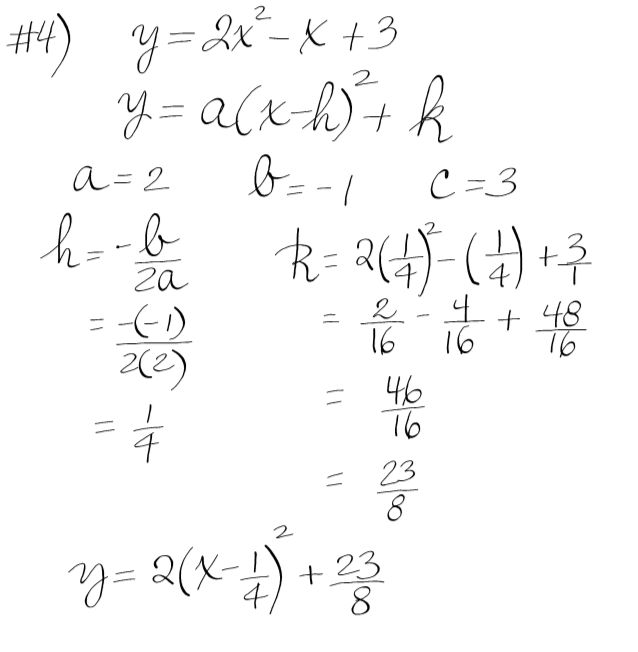 #4) y = 2x² - x + 3
y = a(x-h)² + k
a = 2 b = -1 c = 3
h = -b/2a k = 2(1/4)² - (1/4) + 3/1
= -(-1)/2(2) = 2/16 - 4/16 + 48/16
= 1/4 = 46/16
= 23/8
y = 2(x - 1/4)² + 23/8